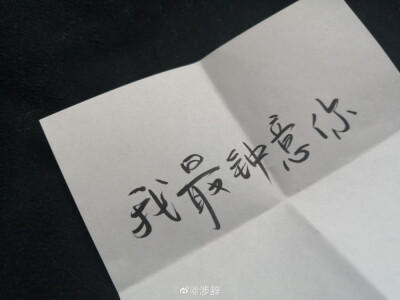 我最钟意你
@涉辞